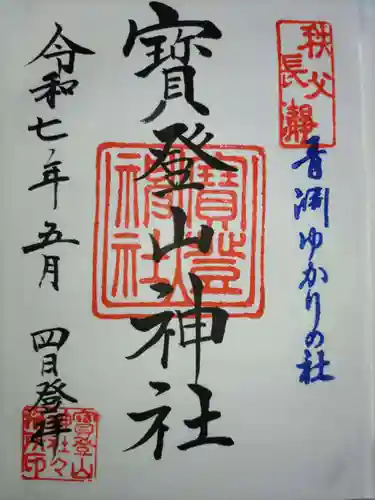 秩父
長瀞
青渊ゆかりの社
寳登山神社
寳登山
神社
令和七年五月
四日登拝
寳登山
神社々
務所印